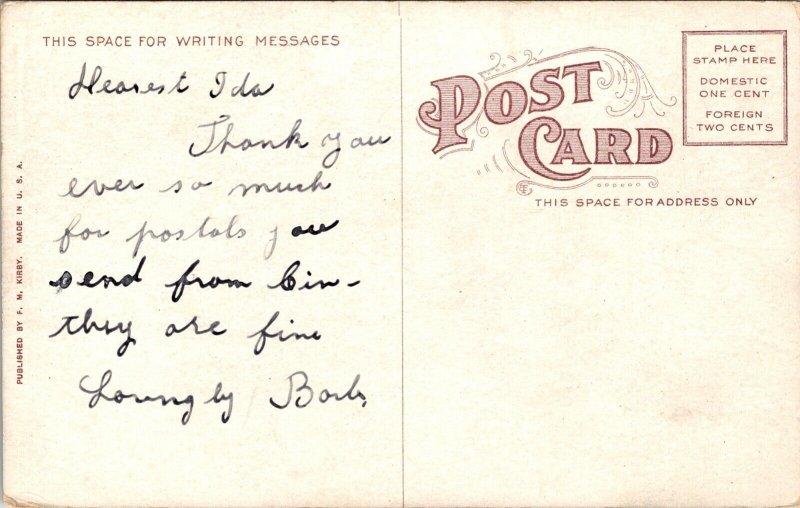 THIS SPACE FOR WRITING MESSAGES
Dearest Ida
Thank you
ever so much
for postals you
send from Cin-
they are fine
Lovingly
PUBLISHED BY F. M. KIRBY. MADE IN U. S. A.
POST
CARD
THIS SPACE FOR ADDRESS ONLY
PLACE
STAMP HERE
DOMESTIC
ONE CENT
FOREIGN
TWO CENTS